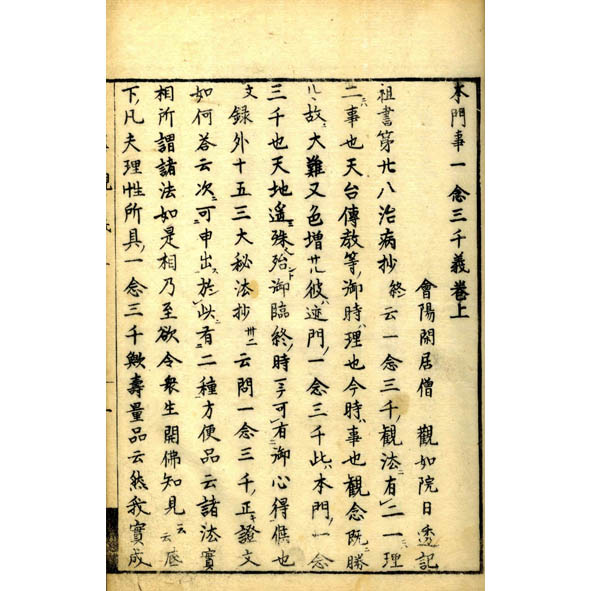 本門事一念三千義卷上
會陽閑居僧 觀如院日透記
祖書第廿八治病抄終云一念三千觀法有二一理
二事也天台傳教等御時理也今時事也觀念既勝
故大難又色增サル彼迹門一念三千此本門一念
三千也天地遙殊殆御臨終時可有御心得候也
文錄外十五三大秘法抄卅二云問一念三千正證文
如何答云次可申出於此有二種方便品云諸法實
相所謂諸法如是相乃至欲令衆生開佛知見云云底
下凡夫理性所具一念三千歟壽量品云然我實成